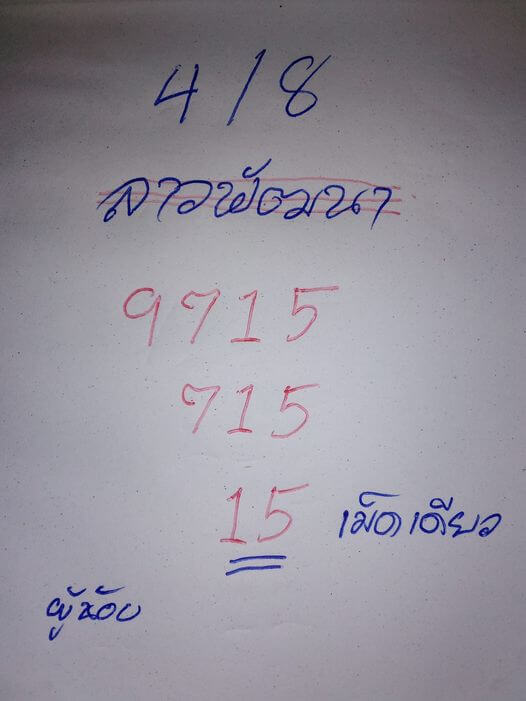 4/8
ลาวพัฒนา
9715
715
15 เม็ดเดียว
ผู้น้อย